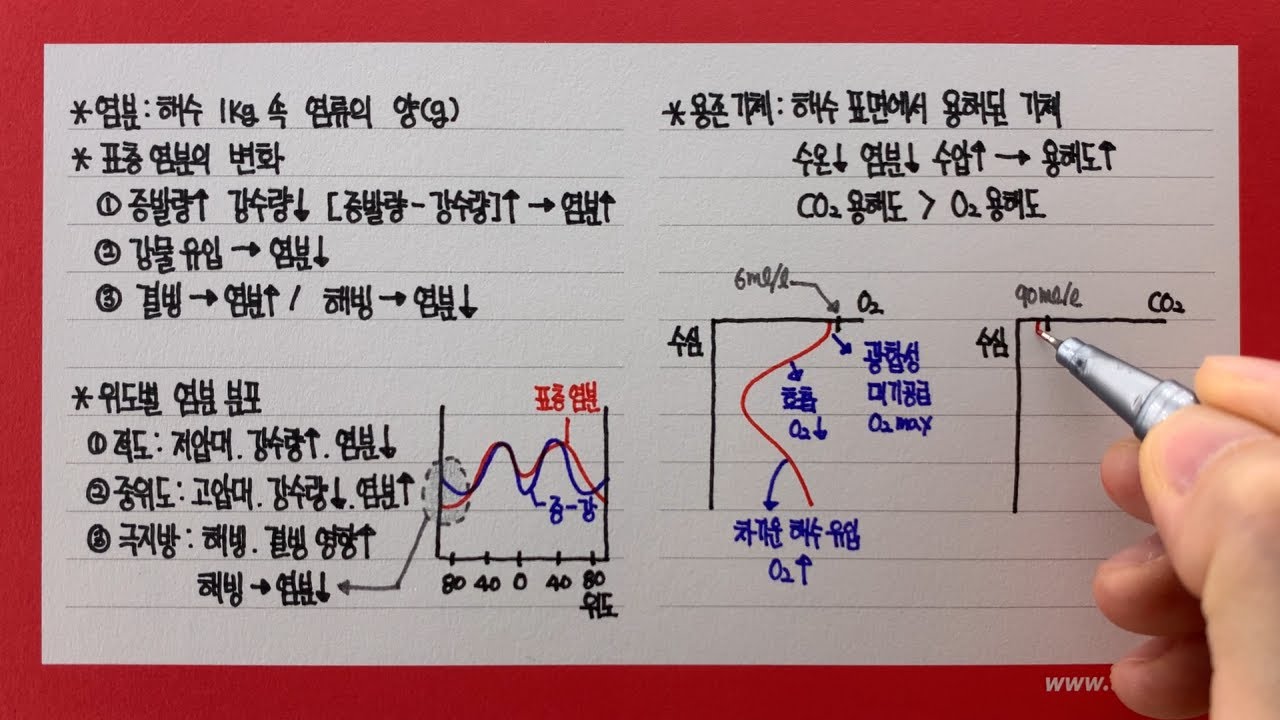 * 염분 : 해수 1kg 속 염류의 양(g)
* 표층 염분의 변화
① 증발량↑ 강수량↓ [증발량 - 강수량]↑ → 염분↑
② 강물 유입 → 염분↓
③ 결빙 → 염분↑ / 해빙 → 염분↓
* 위도별 염분 분포
① 적도 : 저압대. 강수량↑. 염분↓
② 중위도 : 고압대. 강수량↓. 염분↑
③ 극지방 : 해빙. 결빙 영향↑
해빙 → 염분↓
표층 염분
증-강
80 40 0 40 80
위도
* 용존기체 : 해수 표면에서 용해된 기체
수온↓ 염분↓ 수압↑ → 용해도↑
CO₂ 용해도 > O₂ 용해도
6ml/l
O₂
수심
광합성
대기공급
O₂ max
호흡
O₂↓
차가운 해수 유입
O₂↑
90ml/l
CO₂
수심
www.